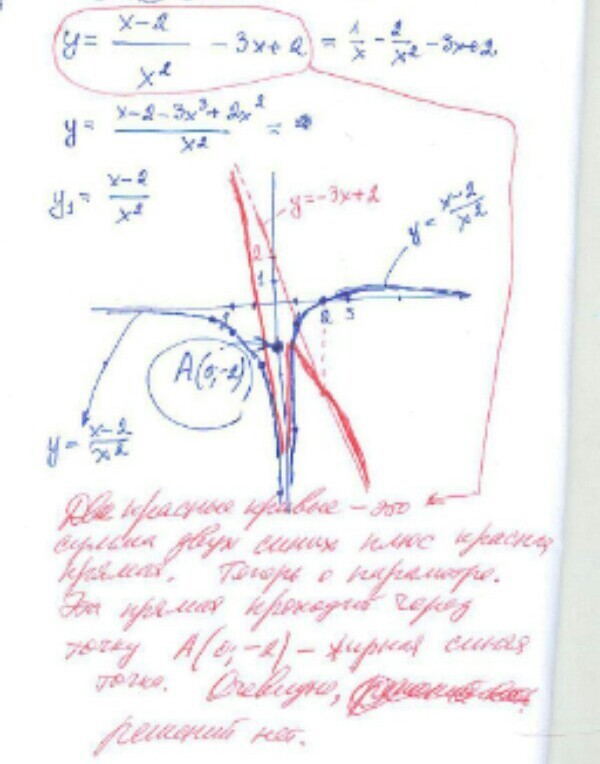 y = x-2/x² - 3x+2 = 1/x - 2/x² - 3x+2
y = x-2-3x³+2x²/x² =
y₁ = x-2/x²
y=-3x+2
y = x-2/x²
2
1
2 3
A(0,-2)
y = x-2/x²
Две красные кривые - это
сумма двух синих плюс красная
прямая. Теперь о параметре.
Эта прямая проходит через
точку A(0,-2) - жирная синяя
точка. Очевидно,
решений нет.